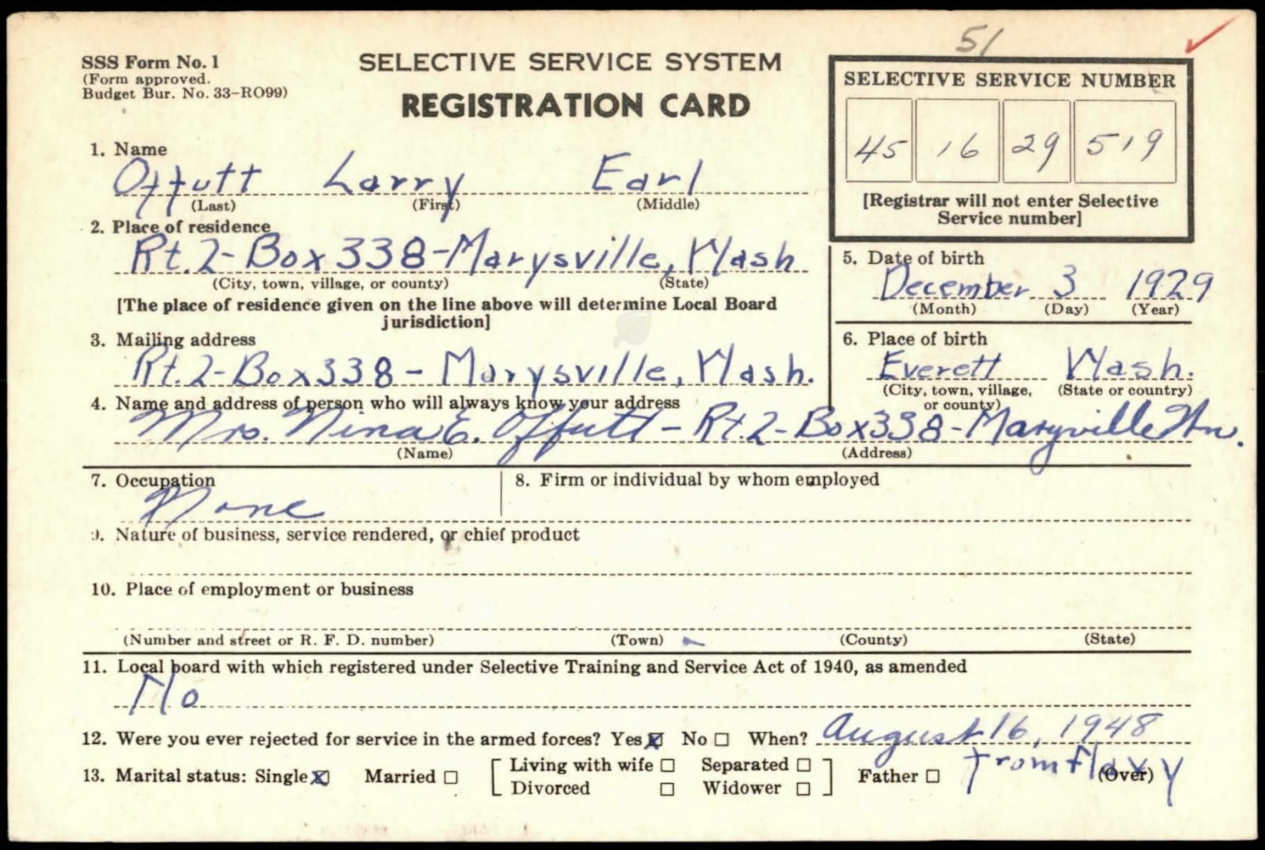 51
SSS Form No. 1
(Form approved.
Budget Bur. No. 33-RO99)
SELECTIVE SERVICE SYSTEM
REGISTRATION CARD
SELECTIVE SERVICE NUMBER
45 16 29 519
[Registrar will not enter Selective
Service number]
1. Name
Offutt Larry Earl
(Last) (First) (Middle)
2. Place of residence
Rt. 2-Box 338-Marysville, Wash
(City, town, village, or county) (State)
[The place of residence given on the line above will determine Local Board
jurisdiction]
3. Mailing address
Rt. 2-Box 338- Marysville, Wash.
5. Date of birth
December 3 1929
(Month) (Day) (Year)
6. Place of birth
Everett Wash.
(City, town, village,
or county)
(State or country)
4. Name and address of person who will always know your address
Mrs. Nina E. Offutt - Rt. 2-Box 338-Maryville Wn.
(Name) (Address)
7. Occupation
None
8. Firm or individual by whom employed
9. Nature of business, service rendered, or chief product
10. Place of employment or business
(Number and street or R. F. D. number) (Town) (County) (State)
11. Local board with which registered under Selective Training and Service Act of 1940, as amended
No
12. Were you ever rejected for service in the armed forces? Yes ☒ No ☐ When? August 16, 1948
from Navy
13. Marital status: Single ☒ Married ☐ [ Living with wife ☐ Separated ☐
Divorced ☐ Widower ☐ ] Father ☐ (Over)